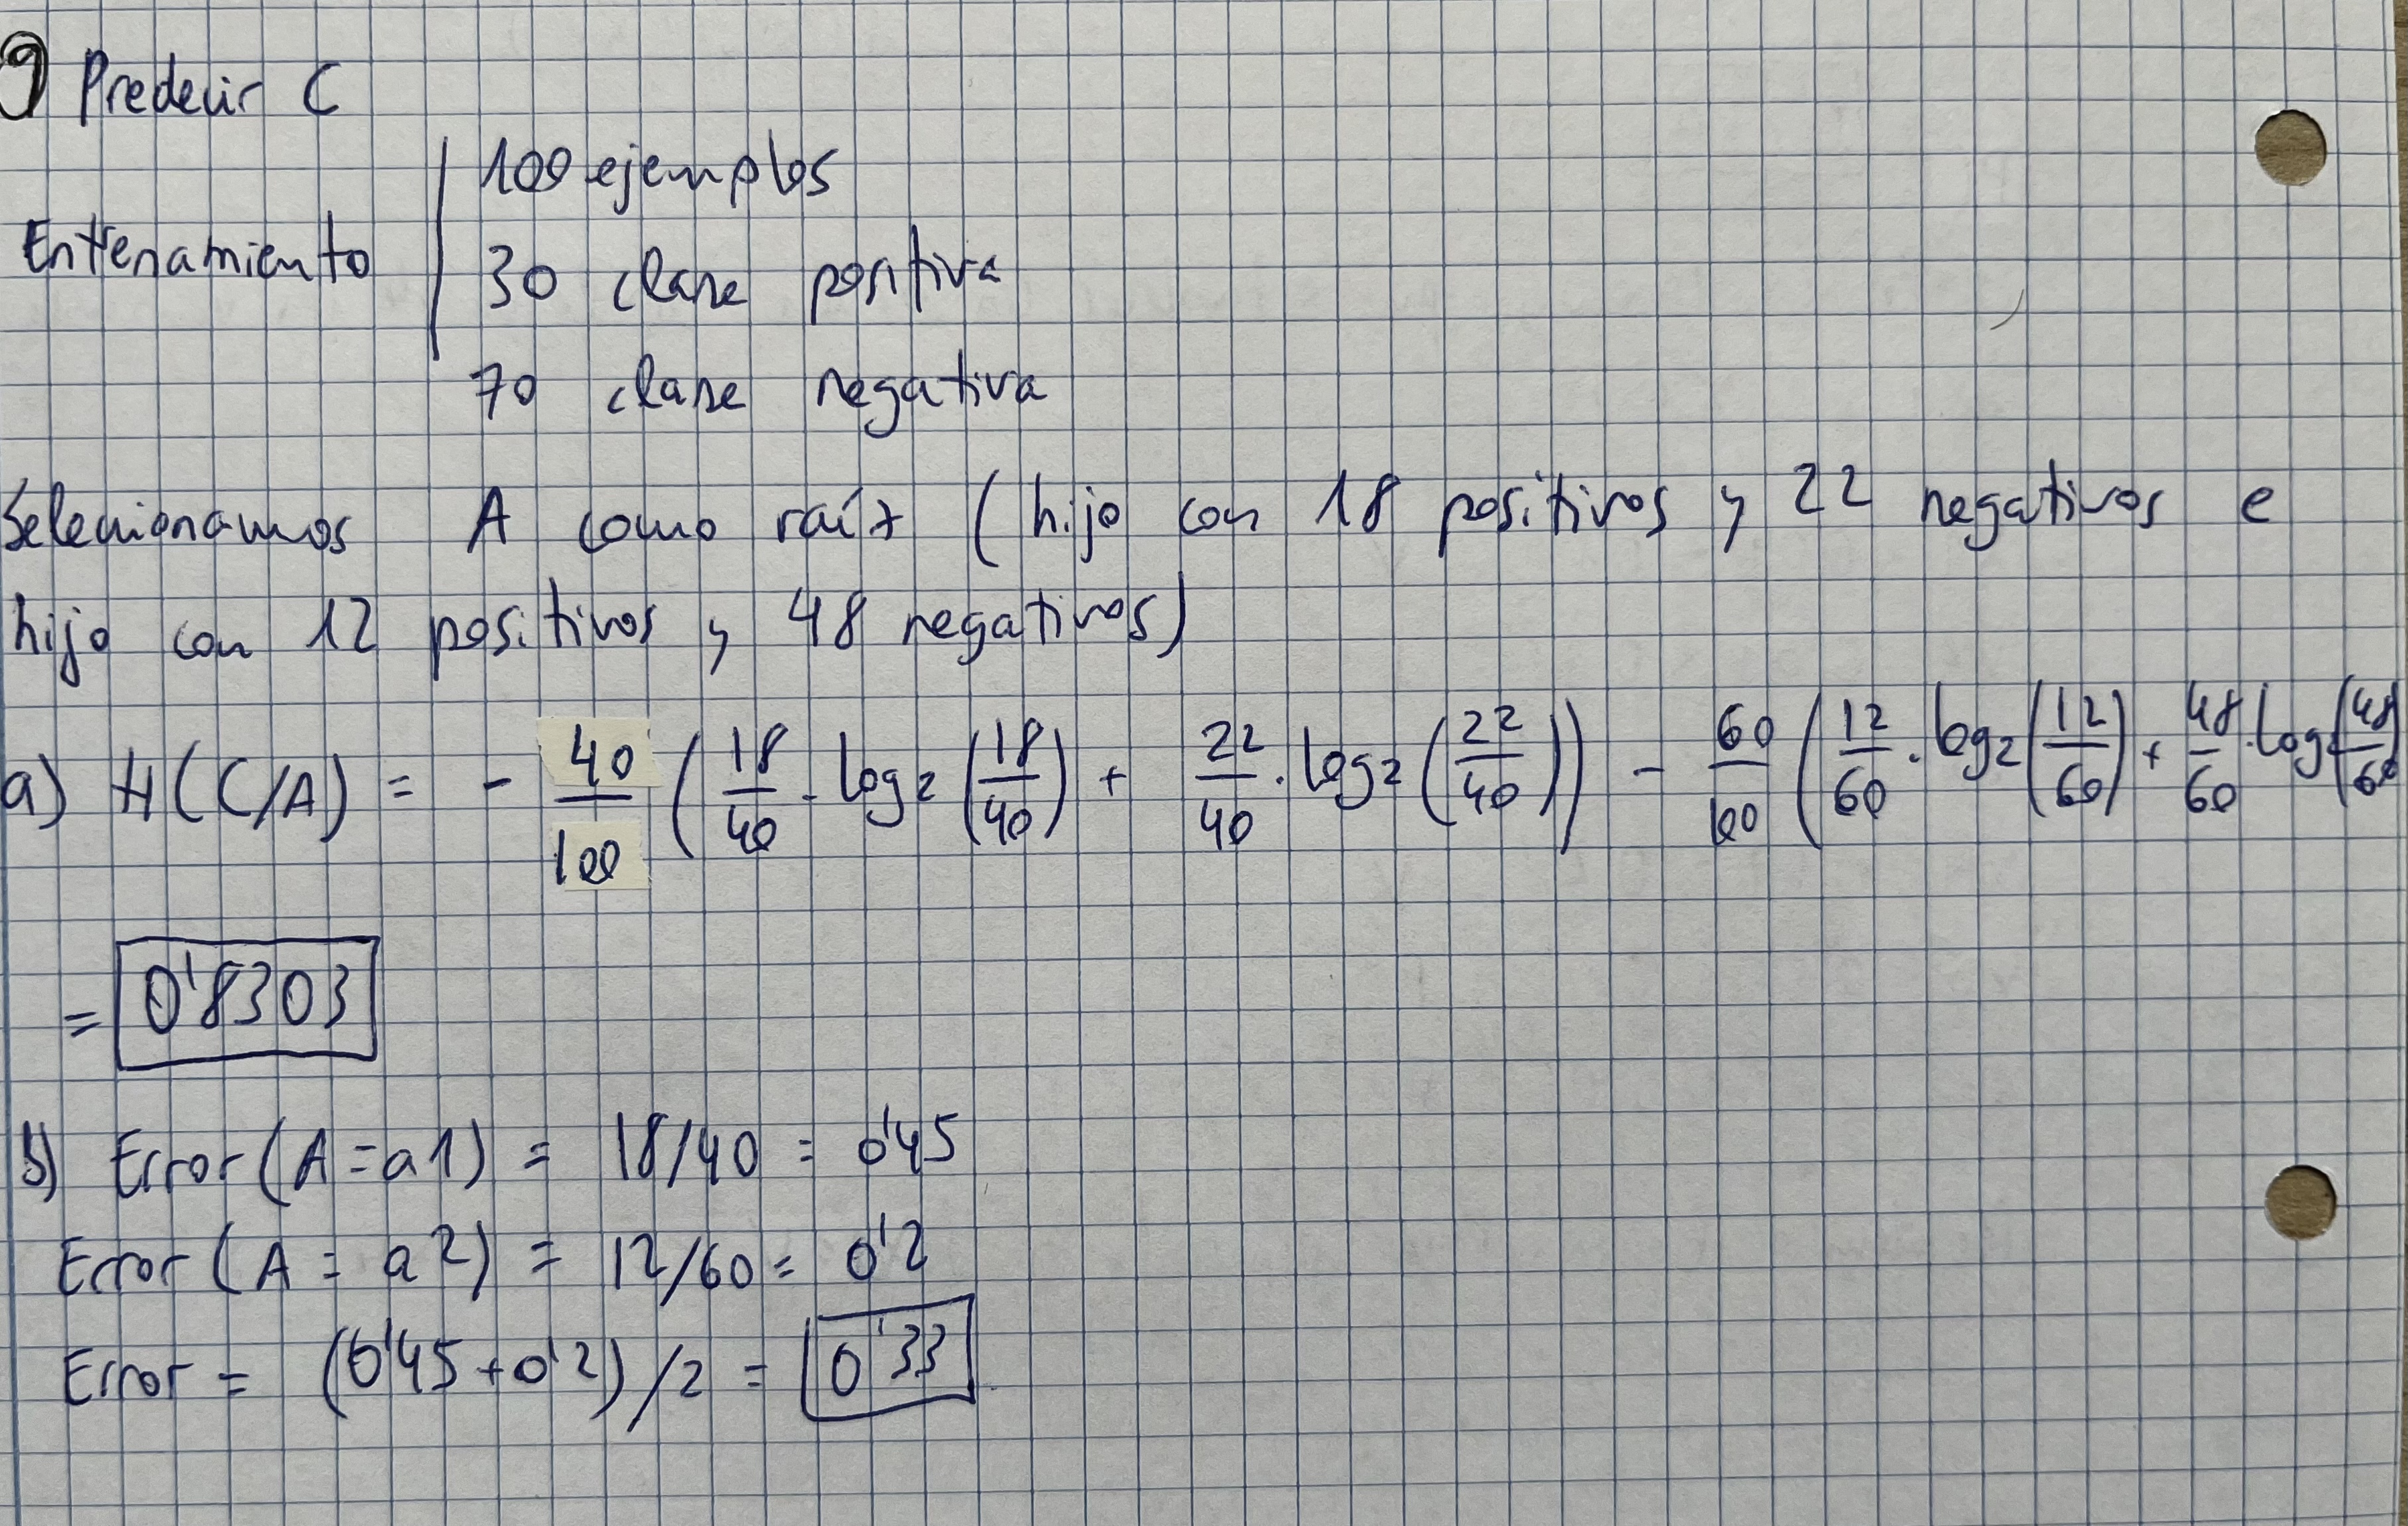 9 Predecir C
100 ejemplos
Entrenamiento 30 clase positiva
70 clase negativa
Selecionamos A como raíz (hijo con 18 positivos y 22 negativos e
hijo con 12 positivos y 48 negativos)
a) H(C/A) = - 40/100 (18/40 · log2 (18/40) + 22/40 · log2 (22/40)) - 60/100 (12/60 · log2 (12/60) + 48/60 · log2 (48/60)
= 0'8303
b) Error (A=a1) = 18/40 = 0'45
Error (A = a2) = 12/60 = 0'2
Error = (0'45+0'2)/2 = 0'33